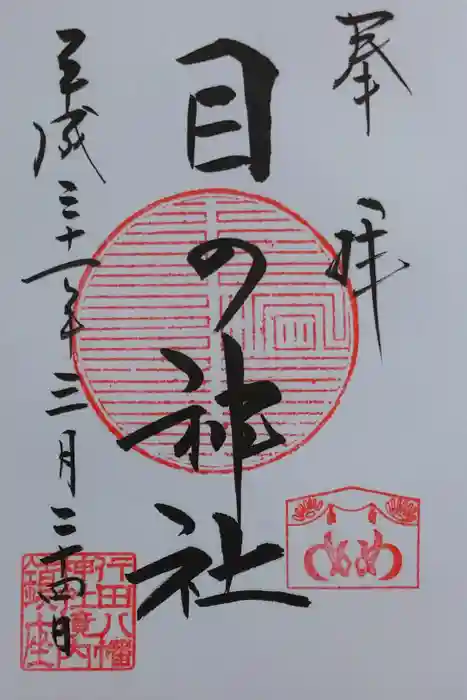 奉拝
目の神社
平成三十一年三月二十四日
めめ
行田八幡
神社境内
鎮座